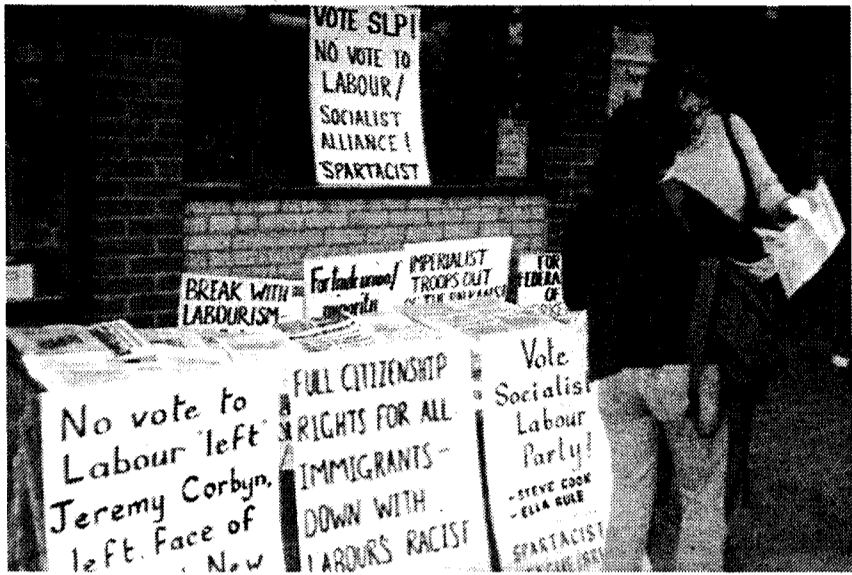 VOTE SLP!
NO VOTE TO
LABOUR/
SOCIALIST
ALLIANCE!
SPARTACIST
BREAK WITH
LABOURISM
For trade union/
minority
IMPERIALIST
TROOPS OUT
OF THE BALKANS!
FOR
FEDERA
OF
No vote to
Labour 'left'
Jeremy Corbyn,
left face of
New
FULL CITIZENSHIP
RIGHTS FOR ALL
IMMIGRANTS -
DOWN WITH
LABOURS RACIST
Vote
Socialist
Labour
Party!
- STEVE COOK
- ELLA RULE
SPARTACIST